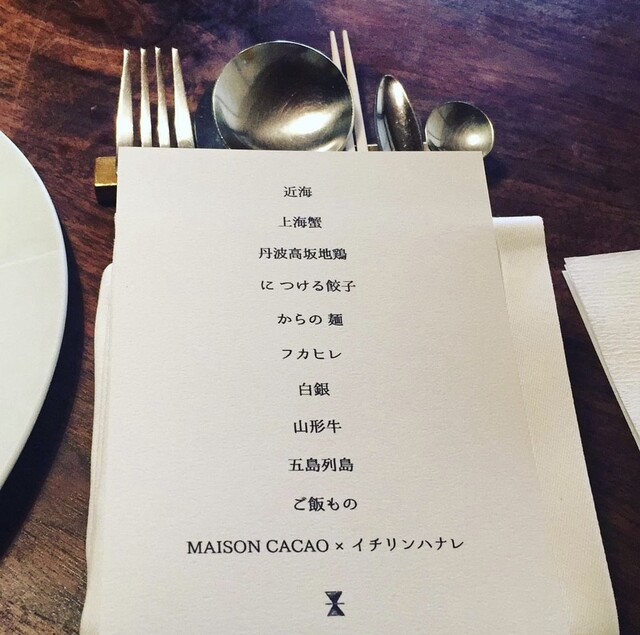 近海
上海蟹
丹波高坂地鶏
に つける餃子
からの 麺
フカヒレ
白銀
山形牛
五島列島
ご飯もの
MAISON CACAO × イチリンハナレ